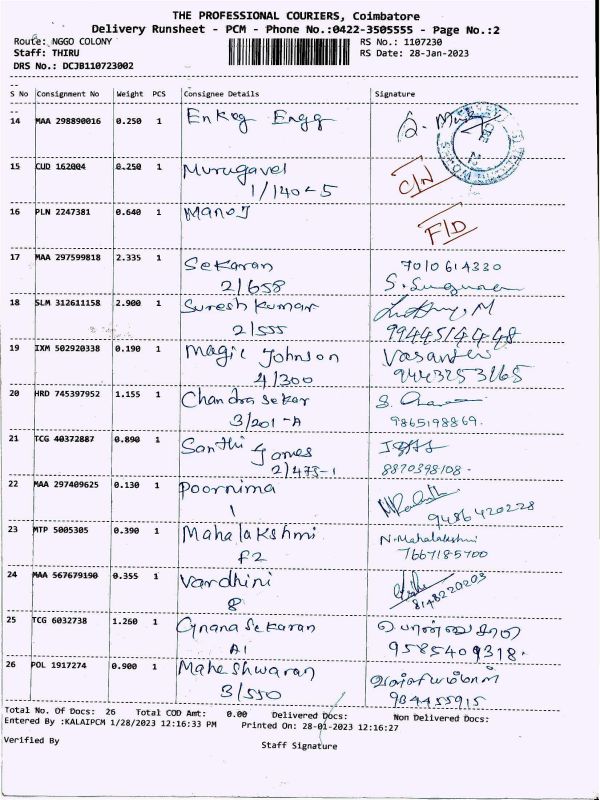 THE PROFESSIONAL COURIERS, Coimbatore
Delivery Runsheet - PCM - Phone No.:0422-3505555 - Page No.:2
Route: NGGO COLONY RS No.: 1107230
Staff: THIRU RS Date: 28-Jan-2023
DRS No.: DCJB110723002
S No Consignment No Weight PCS Consignee Details Signature
14 MAA 298890016 0.250 1 Enkog Engg
15 CUD 162004 0.250 1 Murugavel C/N
1/140-5
16 PLN 2247381 0.640 1 Manoj F/D
17 MAA 297599818 2.335 1 Sekaran 7010614330
2/658
18 SLM 312611158 2.900 1 Suresh kumar
2/555 9944514448
19 IXM 502920338 0.190 1 Magic Johnson
4/300 9443253165
20 HRD 745397952 1.155 1 Chandra Sekar
3/201-A 9865198869.
21 TCG 40372887 0.890 1 Santhi Jones
2/473-1 8870398108-
22 MAA 297409625 0.130 1 Poornima
1 9486420228
23 MTP 5005305 0.390 1 Mahalakshmi N.Mahalakshmi
F2 7667185700
24 MAA 567679190 0.355 1 Vardhini
8 8148220203
25 TCG 6032738 1.260 1 Gnana Sekaran
A1 9585409318.
26 POL 1917274 0.900 1 Maheshwaran
3/550 984455915
Total No. Of Docs: 26 Total COD Amt: 0.00 Delivered Docs: Non Delivered Docs:
Entered By :KALAIPCM 1/28/2023 12:16:33 PM Printed On: 28-01-2023 12:16:27
Verified By Staff Signature